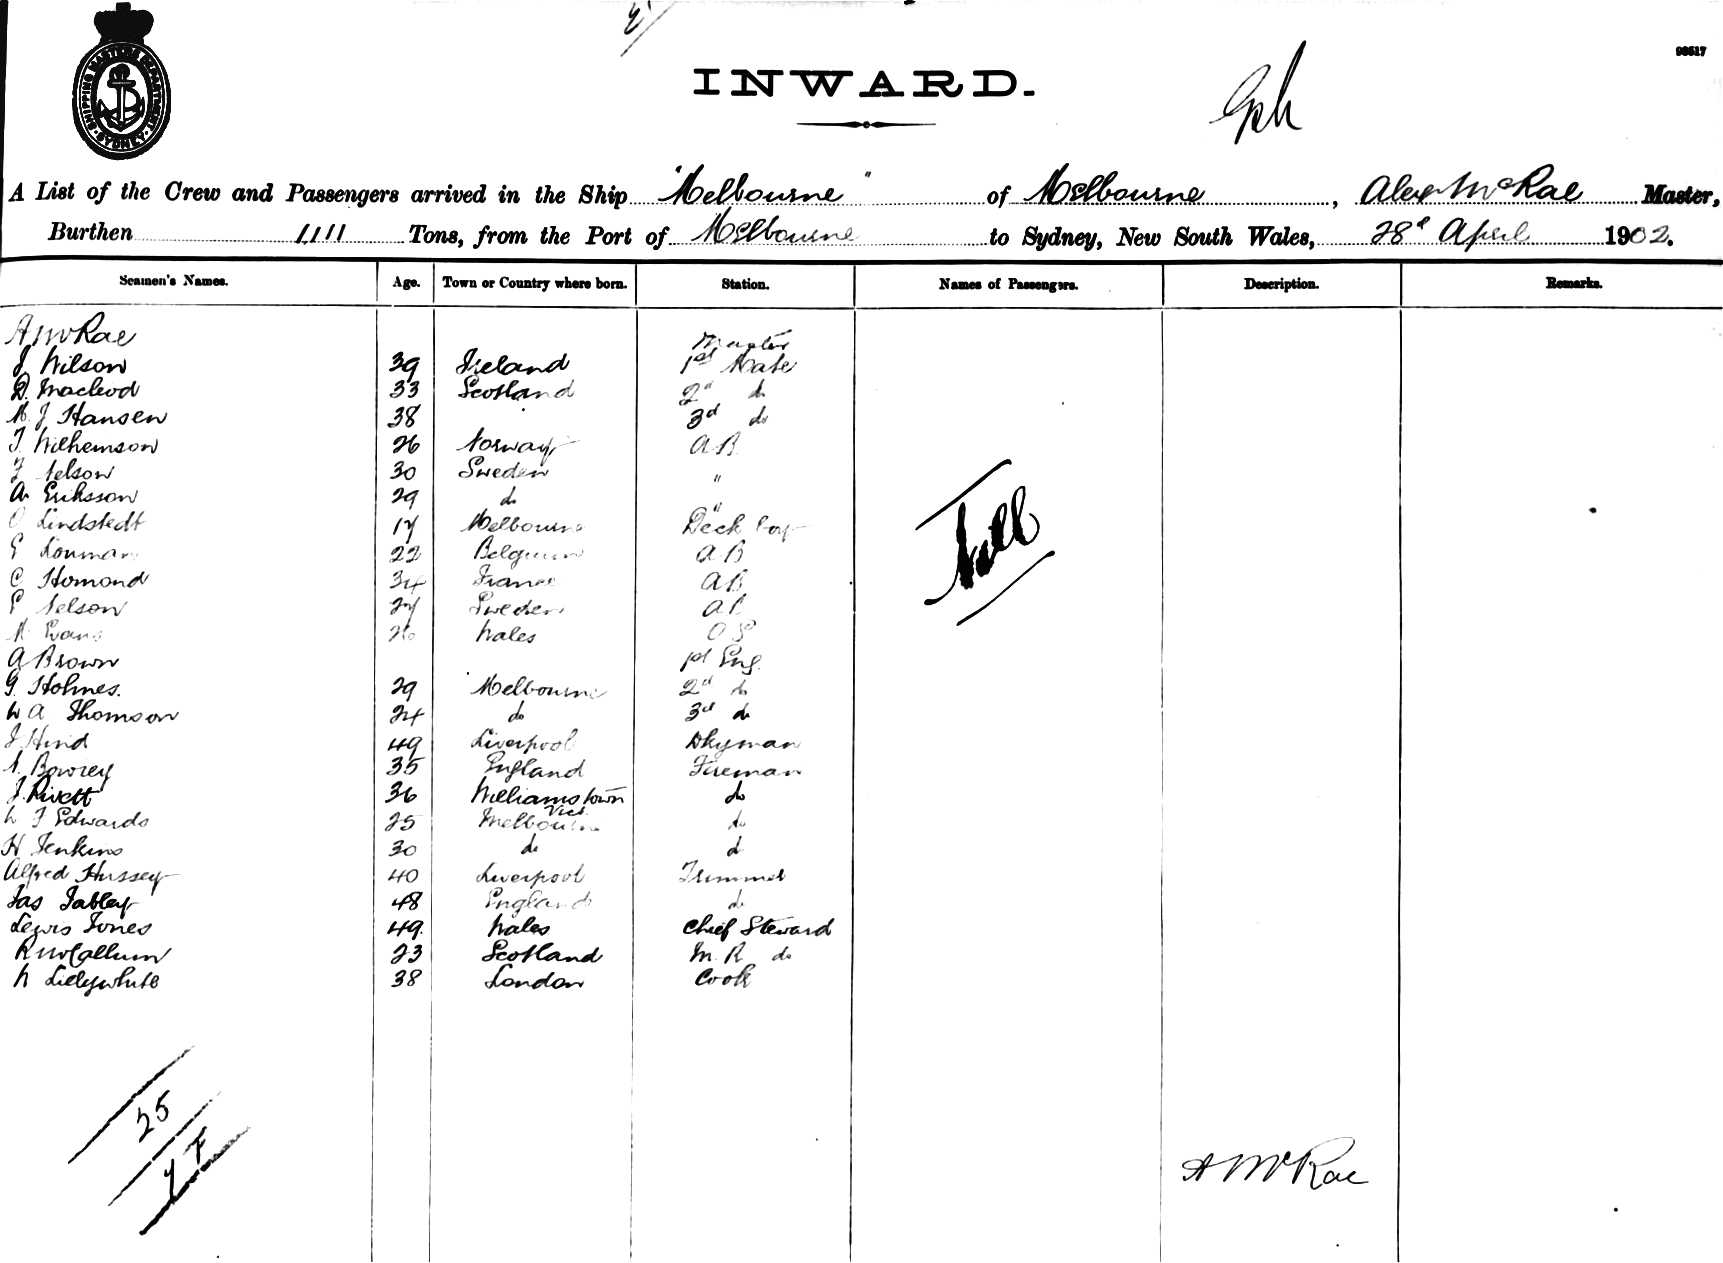 SHIPPING MASTERS DEPARTMENT SYDNEY
98517
INWARD.
A List of the Crew and Passengers arrived in the Ship "Melbourne" of Melbourne, Alex McRae Master,
Burthen 1111 Tons, from the Port of Melbourne to Sydney, New South Wales, 28th April 1902.
Seamen's Names. Age. Town or Country where born. Station. Names of Passengers. Description. Remarks.
A McRae Master
J Wilson 39 Ireland 1st Mate
D. Macleod 33 Scotland 2d do
J Hansen 38 3d do
Wilhemson 26 Norway AB
Nelson 30 Sweden "
A Eriksson 29 do "
Lindstedt 17 Melbourne Deck boy
22 Belguim AB
C Homond 34 France AB
Nelson 27 Sweden AB
Evans 26 Wales OS
A Brown 1st Eng.
G. Holmes. 29 Melbourne 2d do
W A Thomson 24 do 3d do
J Hind 49 Liverpool Dkyman
Bowrey 35 England Fireman
J. Rivett 36 Williamstown Vict. do
W J Edwards 25 Melbourne do
H Jenkins 30 do d
Alfred Hussey 40 Liverpool Trimmer
Jas Tabley 48 England do
Lewis Jones 49. Wales Chief Steward
R McCallum 23 Scotland M. R do
W Lillywhite 38 London Cook
Nill
25
A McRae